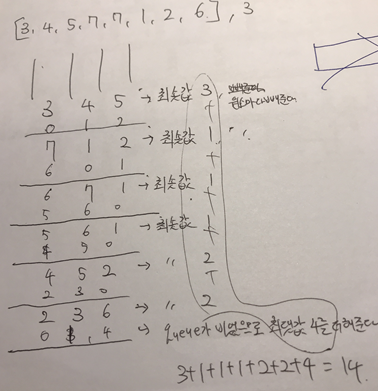 [3, 4, 5, 7, 7, 1, 2, 6], 3
3 4 5 → 최솟값 3,
0 1 2 +
7 1 2 → 최솟값 1, 〃
6 0 1 +
6 7 1 → 최솟값 1
5 6 0 +
5 6 1 → 최솟값 1
4 5 0 +
4 5 2 → 〃 2
2 3 0 +
2 3 6 → 〃 2
0 1, 4 → Queue가 비었으므로 최댓값 4를 더해준다
3+1+1+1+2+2+4 = 14.